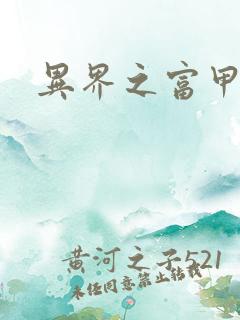 異界之富甲
黄河之子521
未经同意禁止转载